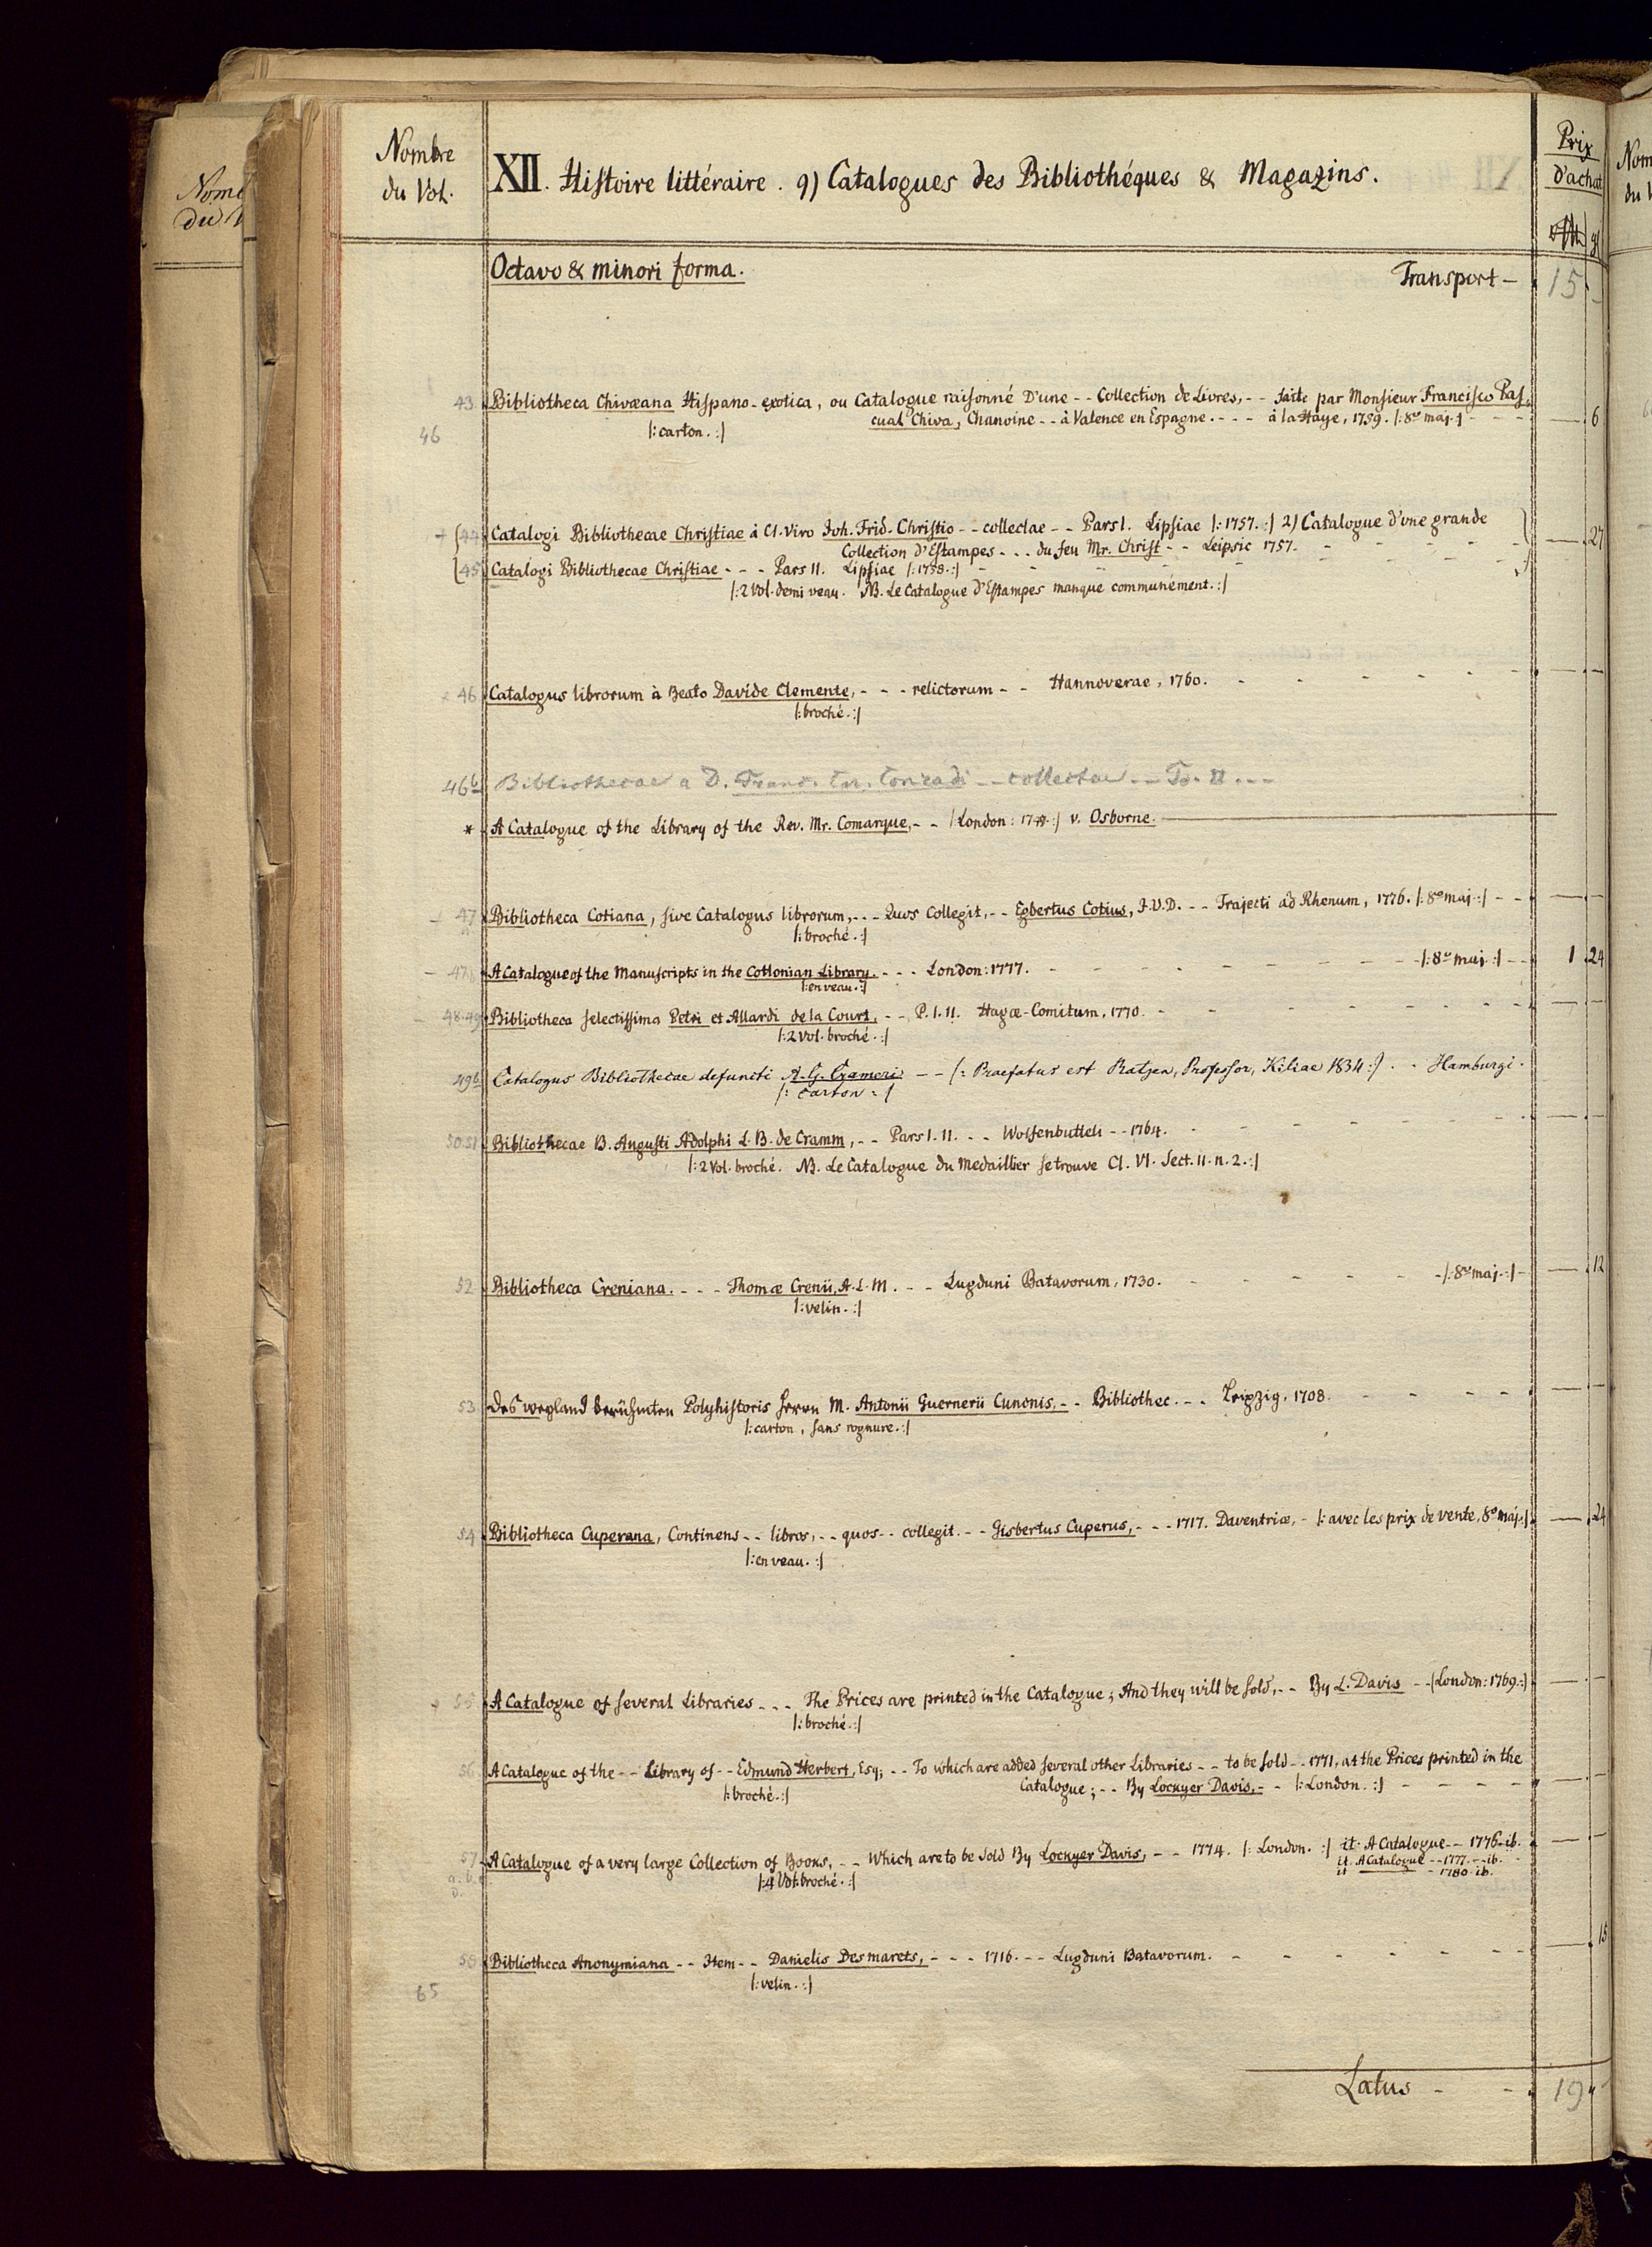 Nombre
du Vol.
XII. Histoire littéraire. 9) Catalogues des Bibliothéques & Magazins.
Prix
d'achat
Octavo & minori forma. Transport — 15
43 Bibliotheca Chivæana Hispano-exotica, ou Catalogue raisonné D'une - - Collection de Livres, - - faite par Monsieur Francisco Pas-
cual Chiva, Chanoine - - à Valence en Espagne. - - - à la Haye, 1759. |: 8º maj. :| — 6
46 |: carton. :|
44 Catalogi Bibliothecae Christiae à Cl. Viro Joh. Frid. Christio - - collectae - - Pars I. Lipsiae |: 1757. :| 2) Catalogue d'une grande
Collection d'Estampes - - - du feu Mr. Christ - - Leipsic 1757. — 27
45 Catalogi Bibliothecae Christiae - - - Pars II. Lipsiae |: 1758. :|
|: 2 Vol. demi veau. NB. Le Catalogue d'Estampes manque communément. :|
46 Catalogus librorum à Beato Davide Clemente, - - - relictorum - - Hannoverae, 1760. — —
|: broché. :|
46b Bibliothecae a D. Franc. Car. Conradi - - collectae - - To. II - - -
* A Catalogue of the Library of the Rev. Mr. Comarque, - - |: London: :| v. Osborne.
47 Bibliotheca Cotiana, sive Catalogus librorum, - - - Quos Collegit, - - Egbertus Cotius, J.U.D. - - - Trajecti ad Rhenum, 1776. |: 8º maj. :| - - — —
|: broché. :|
47 A Catalogue of the Manuscripts in the Cottonian Library. - - - London: 1777. - |: 8º maj. :| - - 1 24
|: en veau. :|
48.49 Bibliotheca selectissima Petri et Allardi de la Court, - - P. I. II. Hagæ-Comitum, 1770. — —
|: 2 Vol. broché. :|
49b Catalogus Bibliothecae defuncti A. G. Crameri - - |: Praefatus est Ratjen, Professor, Kiliae 1834 :| . . Hamburgi.
|: Carton :|
50.51 Bibliothecae B. Augusti Adolphi L. B. de Cramm, - - Pars I. II. - - - Wolfenbutteli - - 1764. — —
|: 2 Vol. broché. NB. Le Catalogue du Medaillier se trouve Cl. VI. Sect. II. n. 2. :|
52 Bibliotheca Creniana. - - - Thomæ Crenii, A. L. M. - - - Lugduni Batavorum, 1730. - |: 8º maj. :| - — 12
|: velin. :|
53 Des weyland berühmten Polyhistoris Herrn M. Antonii Guernerii Cunonis, - - Bibliothec. - - - Leipzig, 1708. — —
|: carton, sans rognure. :|
54 Bibliotheca Cuperana, Continens - - libros, - - quos - - collegit. - - Gisbertus Cuperus, - - - 1717. Daventriæ, - |: avec les prix de vente, 8º maj. :| — 24
|: en veau. :|
55 A Catalogue of several Libraries - - - The Prices are printed in the Catalogue; And they will be sold, - - By L. Davis - - |: London: 1769. :| — —
|: broché. :|
56 A Catalogue of the - - Library of - - Edmund Herbert, Esq; - - To which are added several other Libraries - - to be sold - - 1771, at the Prices printed in the
Catalogue; - - By Lockyer Davis, - - |: London. :| — —
|: broché. :|
57 A Catalogue of a very large Collection of Books, - - Which are to be sold By Lockyer Davis, - - 1774. |: London. :| it. A Catalogue - - 1776. ib. — —
it. A Catalogue - - 1777. - ib.
it. - 1780. ib.
|: 4 Vol. broché. :|
58 Bibliotheca Anonymiana - - Item - - Danielis Desmarets, - - - 1716. - - - Lugduni Batavorum. — 15
|: velin. :|
65
Latus - - 19